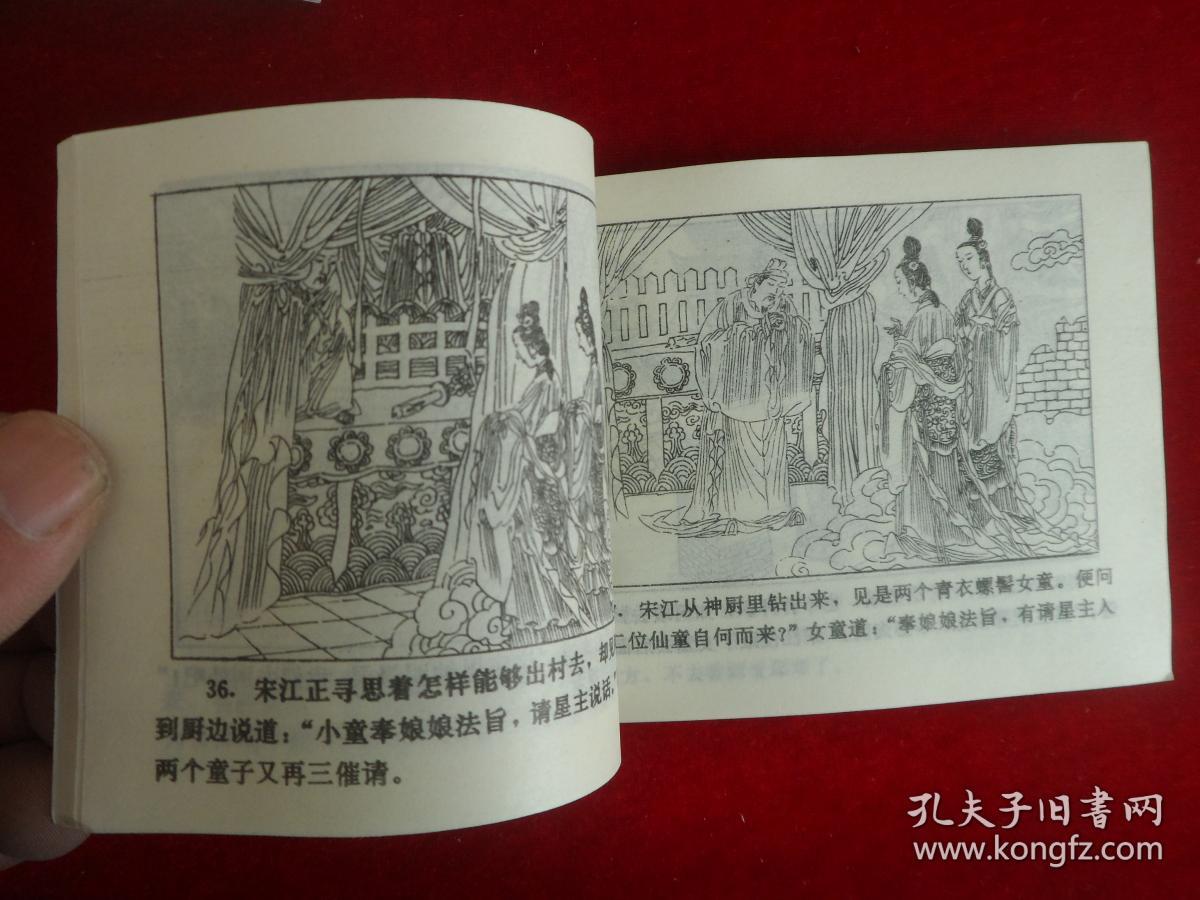 36. 宋江正寻思着怎样能够出村去，却
到厨边说道：“小童奉娘娘法旨，请星主说话。”
两个童子又再三催请。
. 宋江从神厨里钻出来，见是两个青衣螺髻女童。便问
二位仙童自何而来？”女童道：“奉娘娘法旨，有请星主入
孔夫子旧书网
www.kongfz.com